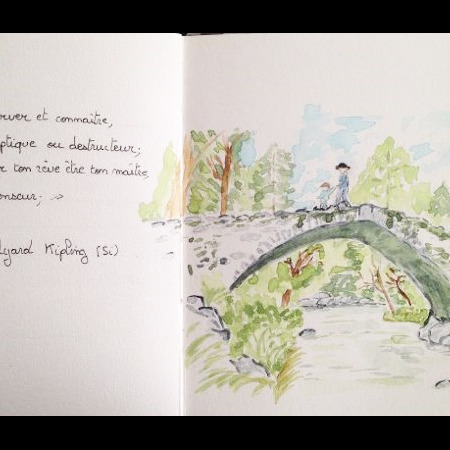 rver et connaître,
ptique ou destructeur;
r ton rêve être ton maître,
nseur; »
dyard Kipling (Si)